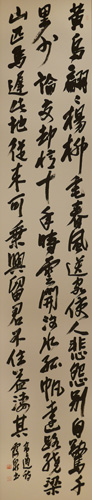 黃鳥翩翩楊柳垂春風送客使人悲怨別自驚千
里外論交却憶十年時雲開汶水孤帆遠路繞梁
山匹馬遲此地從來可乘興留君不住益凄其